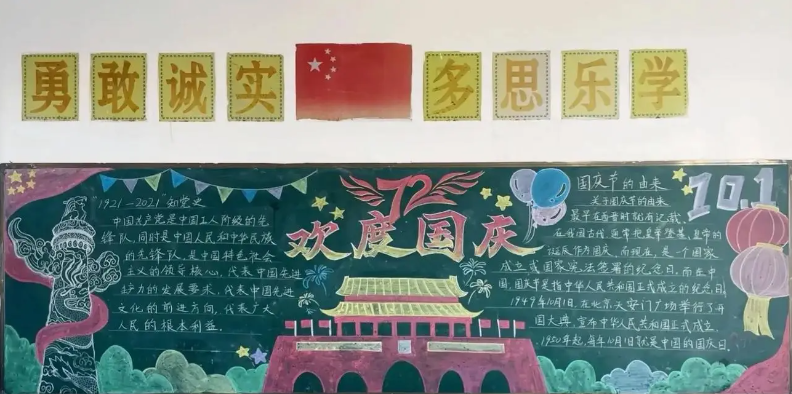 勇敢诚实
多思乐学
72
欢度国庆
"1921-2021"知党史
中国共产党是中国工人阶级的先
锋队，同时是中国人民和中华民族
的先锋队，是中国特色社会
主义的领导核心，代表中国先进
生产力的发展要求，代表中国先进
文化的前进方向，代表广大
人民的根本利益。
10.1
国庆节的由来
关于国庆节的由来
最早在西晋时就有记载，
在我国古代，通常把皇帝登基、皇帝的
诞辰作为国庆，而现在，是一个国家
成立或国家宪法签署的纪念日，而在中
国，国庆节是指中华人民共和国正式成立的纪念日，
1949年10月1日，在北京天安门广场举行了开
国大典，宣布中华人民共和国正式成立。
1950年起，每年10月1日就是中国的国庆日。